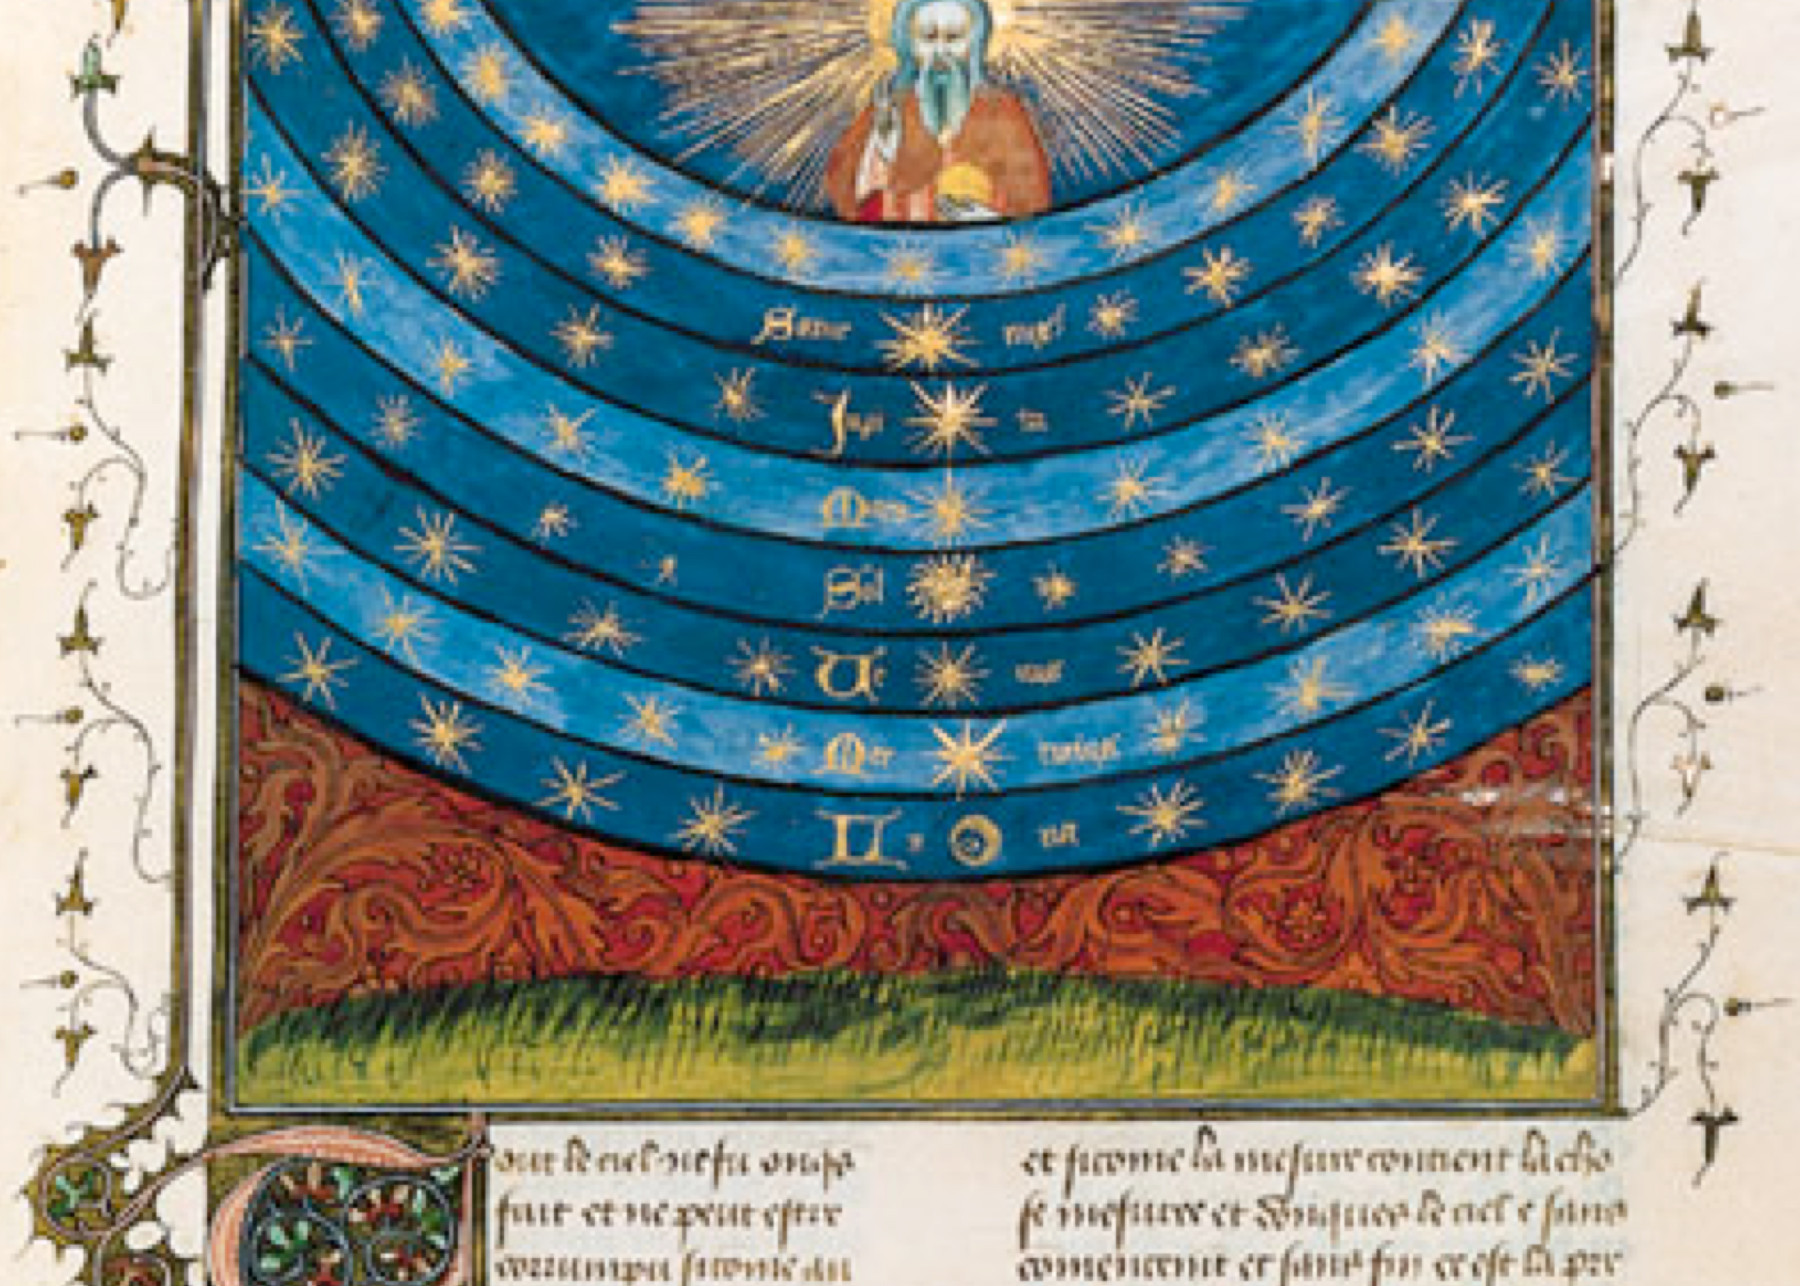 Satur nus
Jupi ter
Mars
Sol
Ve nus
Mer curius
Lu na
Tout le ciel ne fu onqs
fait et ne peut estre
corrumpu si come au
et si come la mesure contient la cho
se mesuree et donques le ciel e sans
comencemt et sans fin ce est la pre